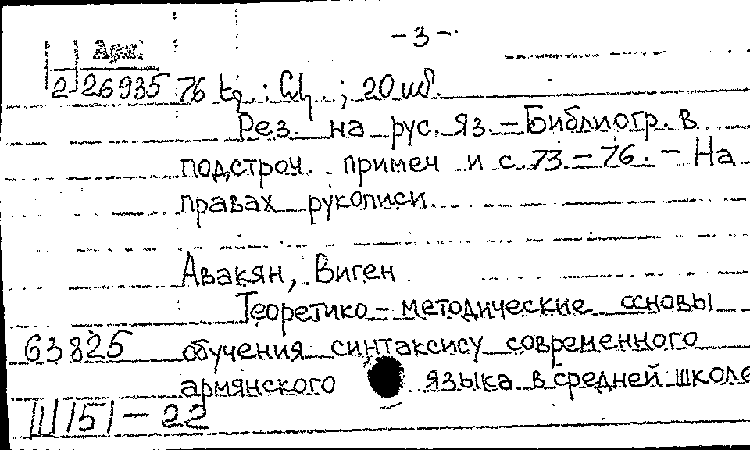 -3-
Арм.
2 26935 76 էջ : նկ. ; 20 սմ.
Рез. на рус. яз. - Библиогр. в
подстроч. примеч и с. 73-76. - На
правах рукописи
Авакян, Виген
Теоретико-методические основы
63825 обучения синтаксису современного
армянского языка в средней школе
III 151-22